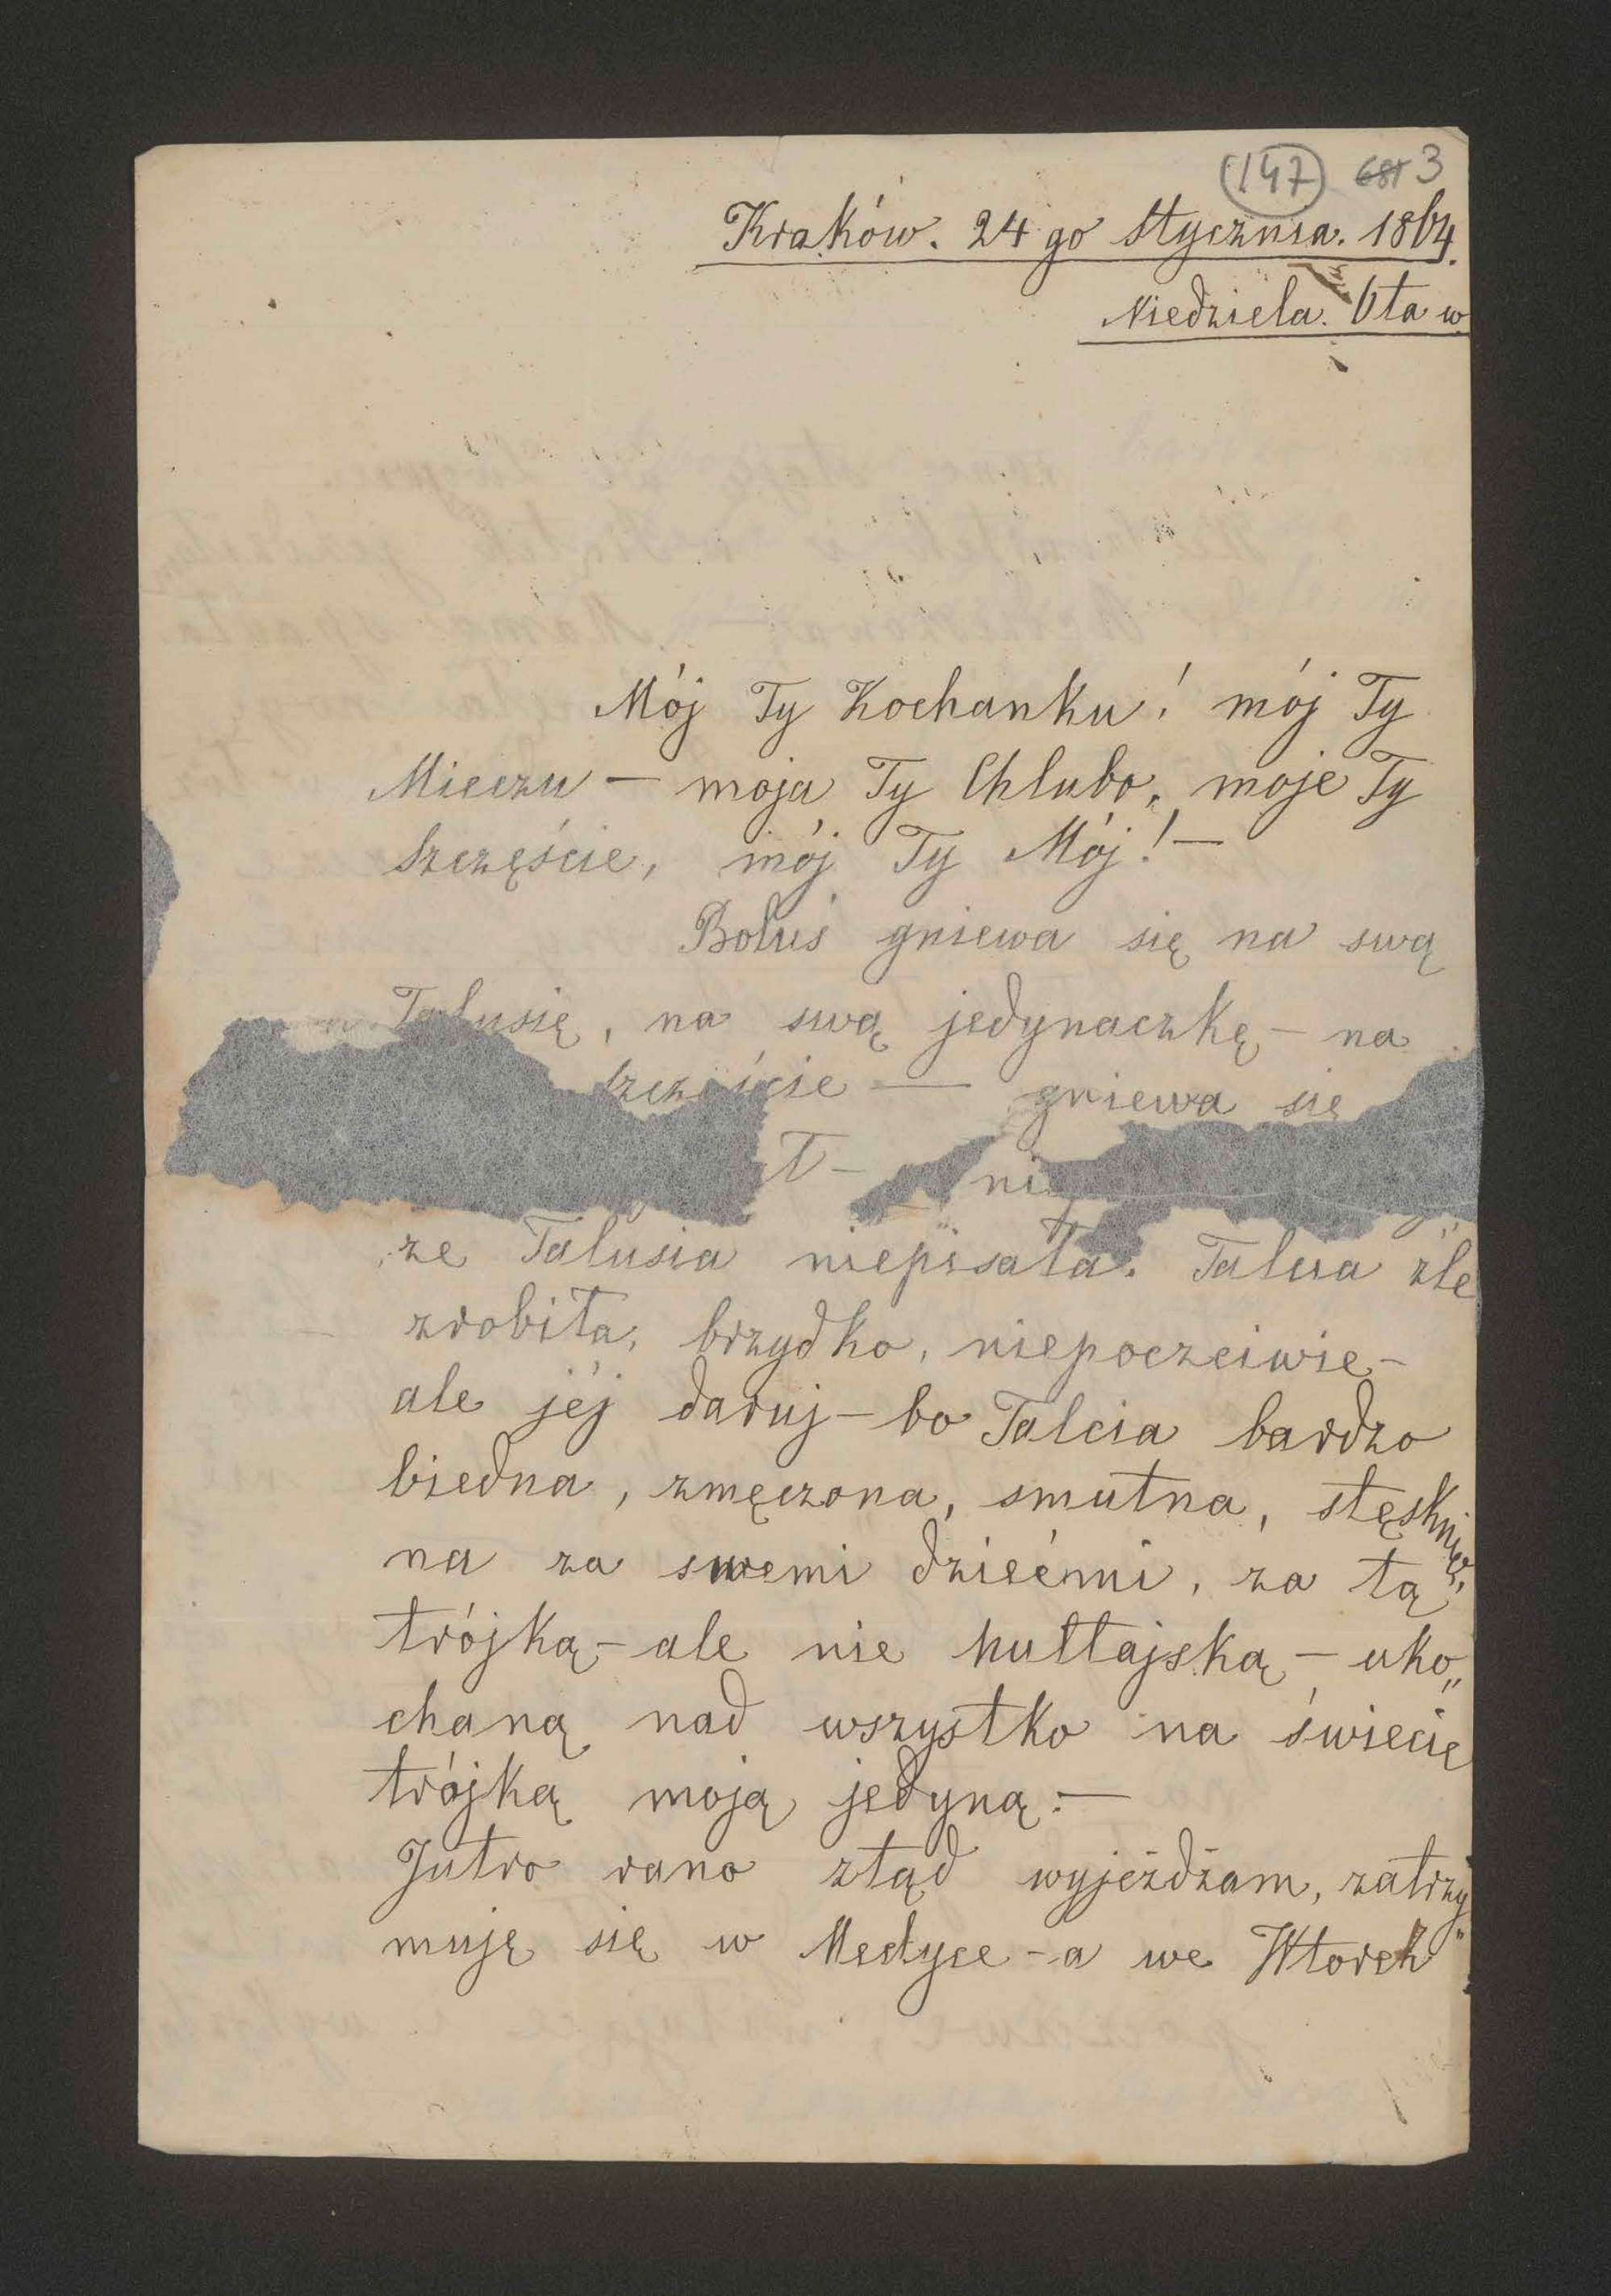 147 681 3
Kraków. 24 go Stycznia. 1864.
Niedziela. 6ta w.
Mój Ty Kochanku! mój Ty
Mieczu — moja Ty Chlubo, moje Ty
Szczęście, mój Ty Mój! —
Boluś gniewa się na swą
Talusię, na swą jedynaczkę — na
szczęście — gniewa się
że Talusia niepisała. Talusia źle
zrobiła, brzydko, niepoczciwie —
ale jéj daruj — bo Talcia bardzo
biedna, zmęczona, smutna, stęsknio„
na za swemi dziećmi, za tą
trójką — ale nie hultajską — uko„
chaną nad wszystko na świecie
trójką moją jedyną. —
Jutro rano ztąd wyjeżdżam, zatrzy„
muję się w Medyce — a we Wtorek